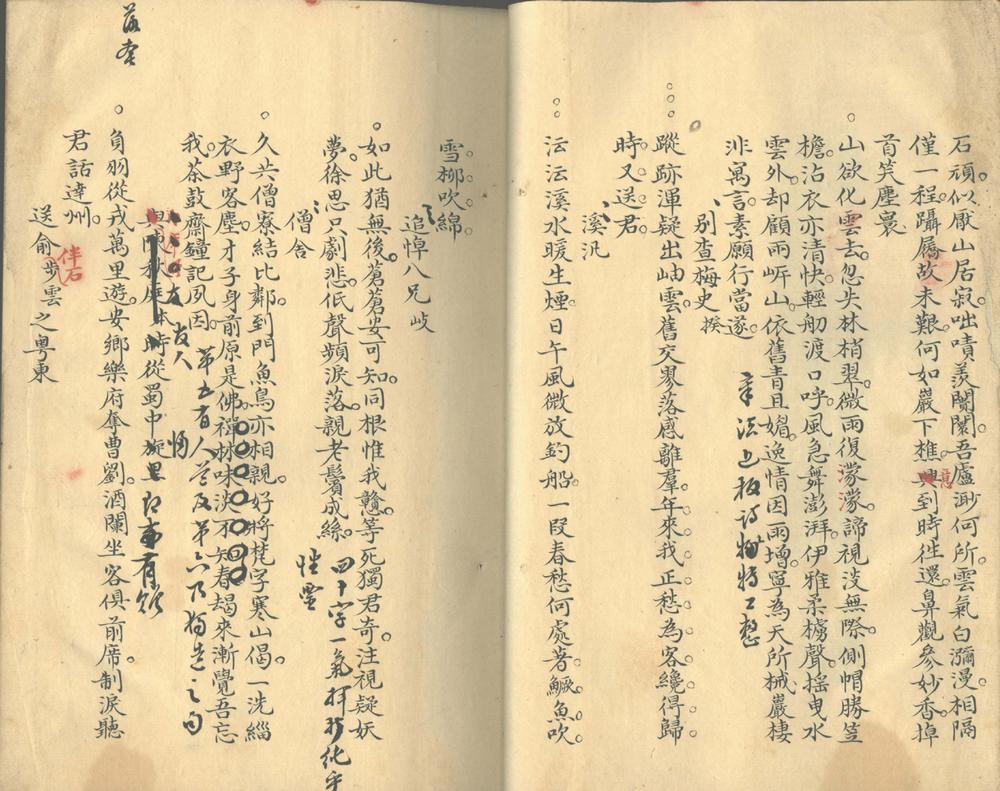 石頑似厭山居寂咄嘖羨闤闠吾廬渺何所雲氣白瀰漫相隔
僅一程躡屩故未艱何如巖下樵興到時徃還鼻觀參妙香掉
首笑塵裏
山欲化雲去忽失林梢翠微雨復濛濛諦視淡無際側帽勝笠
檐沾衣亦清快輕舠渡口呼風急舞澎湃伊雅柔櫓聲搖曳水
雲外却顧兩岈山依舊青且媚逸情因雨增寧為天所械巖棲
非寓言素願行當遂
章法上板詩
別查梅史揆
蹤跡渾疑出岫雲舊交寥落感離羣年來我正愁為客纔得歸
時又送君
溪汎
沄沄溪水暖生煙日午風微放釣船一段春愁何處著鱖魚吹
雪柳吹綿
追悼八兄岐
如此猶無後蒼蒼安可知同根惟我戇等死獨君奇注視疑妖
夢徐思只劇悲低聲頻淚落親老鬢成絲
四十字一氣揮
性靈
僧舍
久共僧寮結比鄰到門魚鳥亦相親好將梵字寒山偈一洗緇
衣野客塵才子身前原是佛禪林味淡不知春朅來漸覺吾忘
我茶鼓齋鐘記夙因
第五首人
友人
時從蜀中旋里
負羽從戎萬里遊安鄉樂府奪曹劉酒闌坐客俱前席制淚聽
君話達州
送俞步雲之粵東
伴石